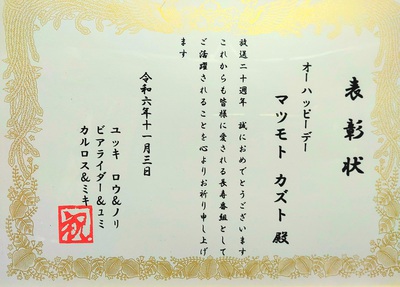 表彰状
オーハッピーデー
マツモト カズト 殿
放送二十周年 誠におめでとうございます
これからも皆様に愛される長寿番組として
ご活躍されることを心よりお祈り申し上げ
ます
令和六年十一月三日
ユッキ ロウ&ノリ
ビアライダー&ユミ
カルロス&ミキ
祝